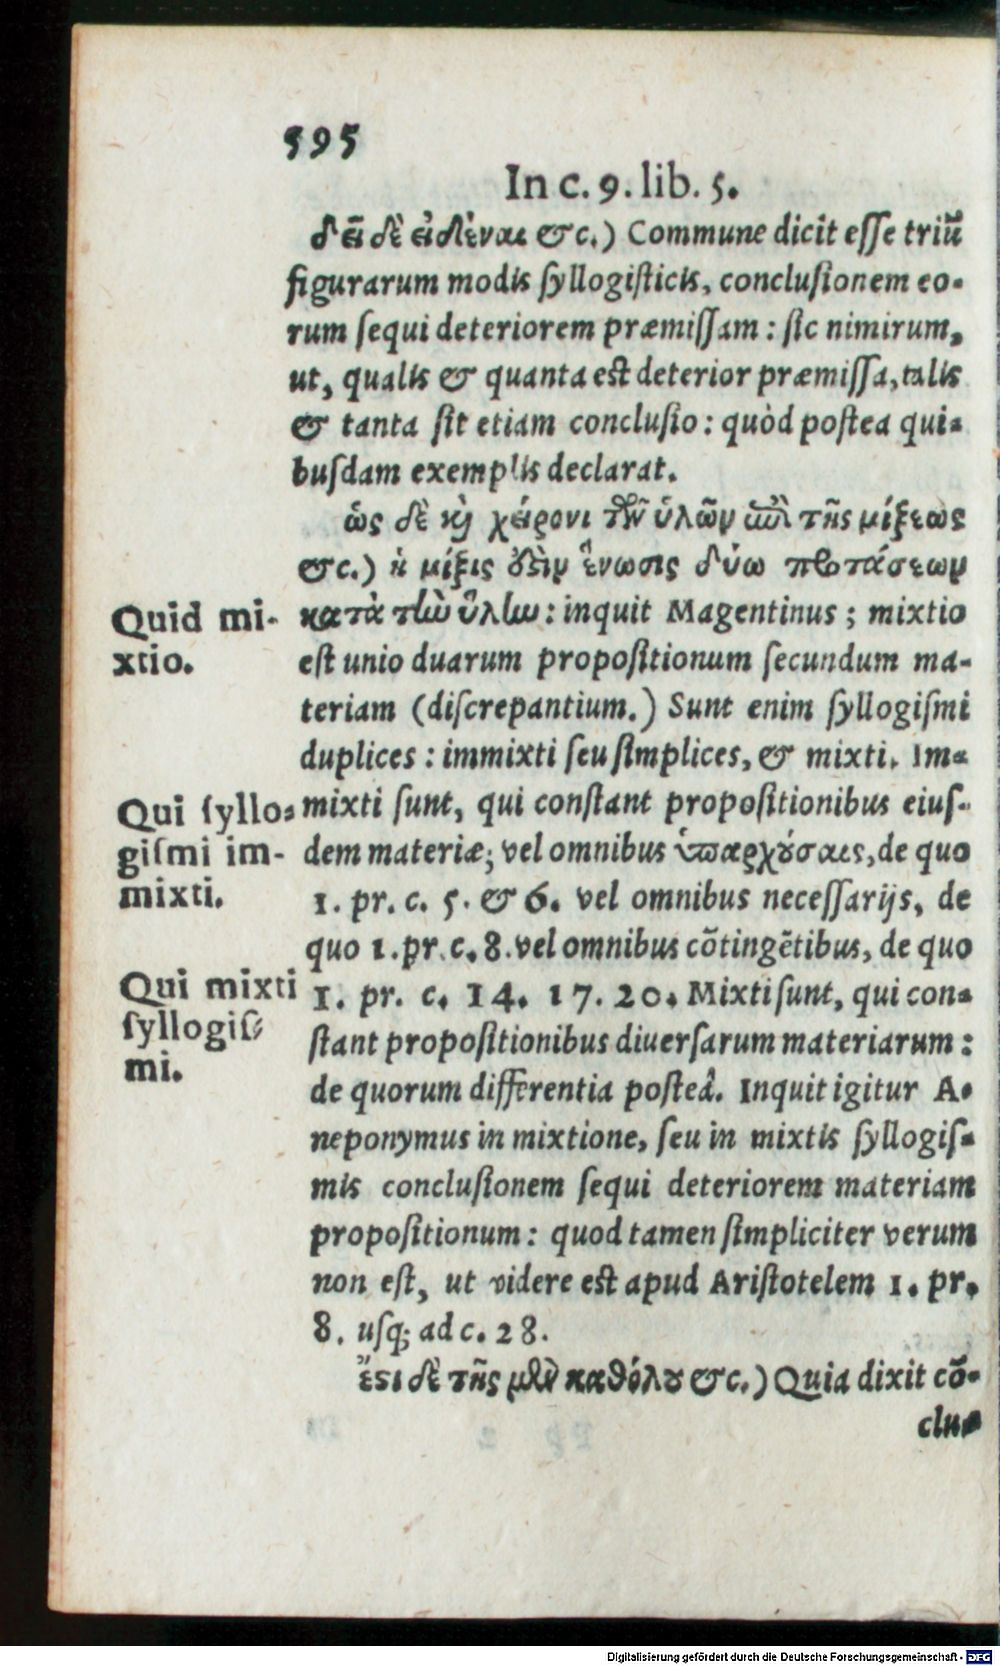 595
In c. 9. lib. 5.
δεῖ δὲ εἰδέναι &c.) Commune dicit eſſe triũ
figurarum modis ſyllogiſticis, concluſionem eo-
rum ſequi deteriorem præmiſſam: ſic nimirum,
ut, qualis & quanta est deterior præmiſſa, talis
& tanta ſit etiam concluſio: quòd poſtea qui-
buſdam exemplis declarat.
ὡς δὲ καὶ χείρονι τῶν ὑλῶν ἐπὶ τῆς μίξεως
&c.) ἡ μίξις ἐςὶν ἕνωσις δύω προτάσεων
Quid mi-
xtio.
κατὰ τὴν ὕλην: inquit Magentinus; mixtio
est unio duarum propoſitionum ſecundum ma-
teriam (diſcrepantium.) Sunt enim ſyllogiſmi
duplices: immixti ſeu ſimplices, & mixti. Im-
Qui ſyllo-
giſmi im-
mixti.
mixti ſunt, qui conſtant propoſitionibus eiuſ-
dem materiæ; vel omnibus ὑπαρχούσαις, de quo
1. pr. c. 5. & 6. vel omnibus neceſſarijs, de
quo 1. pr. c. 8. vel omnibus cõtingẽtibus, de quo
Qui mixti
ſyllogiſ-
mi.
1. pr. c. 14. 17. 20. Mixti ſunt, qui con-
ſtant propoſitionibus diuerſarum materiarum:
de quorum differentia poſteà. Inquit igitur A-
neponymus in mixtione, ſeu in mixtis ſyllogiſ-
mis concluſionem ſequi deteriorem materiam
propoſitionum: quod tamen ſimpliciter verum
non eſt, ut videre est apud Ariſtotelem 1. pr.
8. uſq; ad c. 28.
ἔςι δὲ τῆς μὲν καθόλου &c.) Quia dixit cõ-
clu-
Digitalisierung gefördert durch die Deutsche Forschungsgemeinschaft - DFG